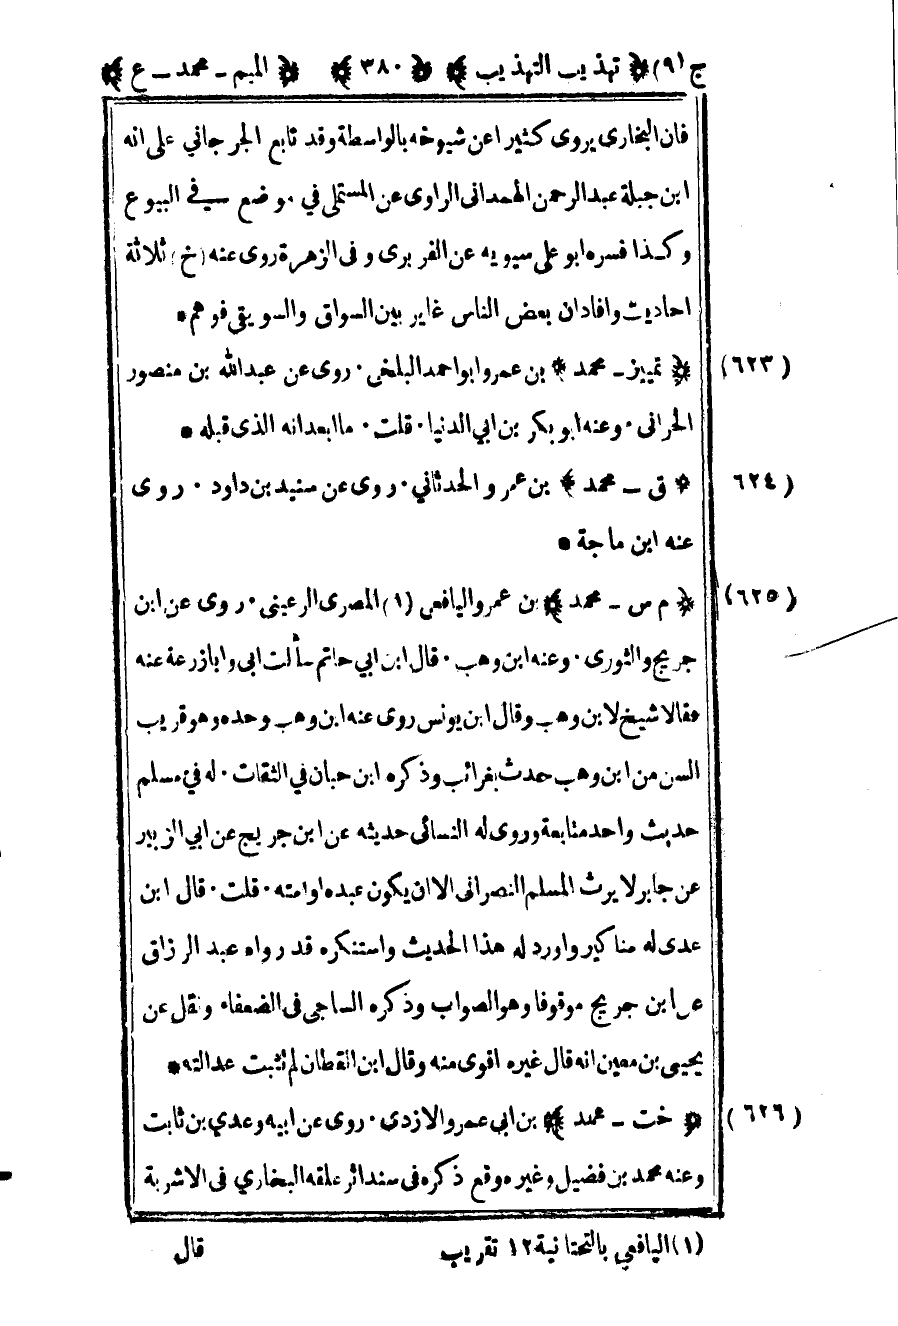 ج (٩) ﴿ تهذيب التهذيب ﴾ ﴿ ٣٨٠ ﴾ ﴿ الميم - محمد - ع ﴾
فان البخارى يروى كثيرا عن شيوخه بالواسطة وقد تابع الجرجاني على انه
ابن جبلة عبد الرحمن الهمدانى الراوى عن المستملى في موضع في البيوع
وكذا فسره ابو على سيويه عن الفربرى و فى الزهرة روى عنه (خ) ثلاثة
احاديث وافاد ان بعض الناس غاير بين السواق والسويقى فوهم *
(٦٢٣) ﴿ تمييز - محمد ﴾ بن عمرو ابو احمد البلخى · روى عن عبدالله بن منصور
الحرانى · وعنه ابو بكر بن ابي الدنيا · قلت · ما ابعد انه الذى قبله *
(٦٢٤) ﴿ ق - محمد ﴾ بن عمرو الحدثاني · روى عن سنيد بن داود · روى
عنه ابن ماجة *
(٦٢٥) ﴿ م س - محمد ﴾ بن عمرو اليافعى (١) المصرى الرعينى · روى عن ابن
جريج والثورى · وعنه ابن وهب · قال ابن ابي حاتم سألت ابى وابا زرعة عنه
فقالا شيخ لابن وهب وقال ابن يونس روى عنه ابن وهب وحده وهو قريب
السن من ابن وهب حدث بغرائب وذكره ابن حبان في الثقات · له في مسلم
حديث واحد متابعة وروى له النسائى حديثه عن ابن جريج عن ابي الزبير
عن جابر لا يرث المسلم النصرانى الا ان يكون عبده او امته · قلت · قال ابن
عدى له مناكير واورد له هذا الحديث واستنكره قد رواه عبد الرزاق
عن ابن جريج موقوفا وهو الصواب وذكره الساجى فى الضعفاء ونقل عن
يحيى بن معين انه قال غيره اقوى منه وقال ابن القطان لم تثبت عدالته *
(٦٢٦) ﴿ خت - محمد ﴾ بن ابي عمرو الازدى · روى عن ابيه وعدي بن ثابت
وعنه محمد بن فضيل وغيره وقع ذكره فى سند اثر علقه البخاري فى الاشربة
(١) اليافعي بالتحتانية ١٢ تقريب
قال